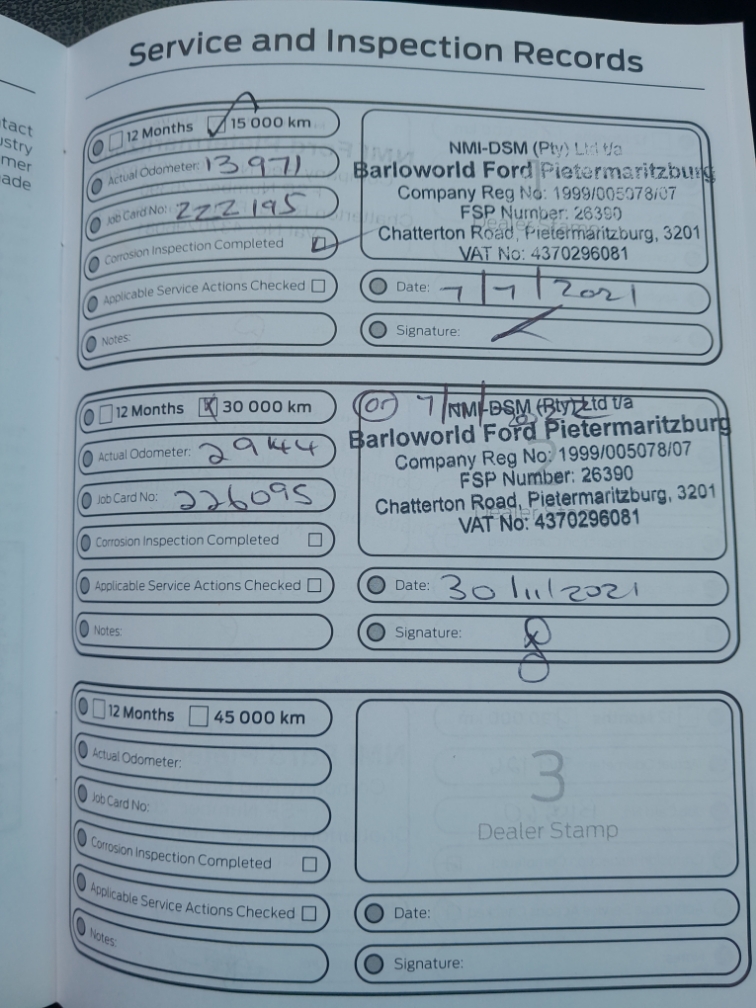 tact
ustry
mer
ade
Service and Inspection Records
12 Months 15 000 km
Actual Odometer: 13971
Job Card No: 222195
Corrosion Inspection Completed
Applicable Service Actions Checked
Notes:
NMI-DSM (Pty) Ltd t/a
Barloworld Ford Pietermaritzburg
Company Reg No: 1999/005078/07
FSP Number: 26390
Chatterton Road, Pietermaritzburg, 3201
VAT No: 4370296081
Date: 7/7/2021
Signature:
12 Months 30 000 km
Actual Odometer: 29144
Job Card No: 226095
Corrosion Inspection Completed
Applicable Service Actions Checked
Notes:
NMI-DSM (Pty) Ltd t/a
Barloworld Ford Pietermaritzburg
Company Reg No: 1999/005078/07
FSP Number: 26390
Chatterton Road, Pietermaritzburg, 3201
VAT No: 4370296081
Date: 30/11/2021
Signature:
12 Months 45 000 km
Actual Odometer:
Job Card No:
Corrosion Inspection Completed
Applicable Service Actions Checked
Notes:
3
Dealer Stamp
Date:
Signature: